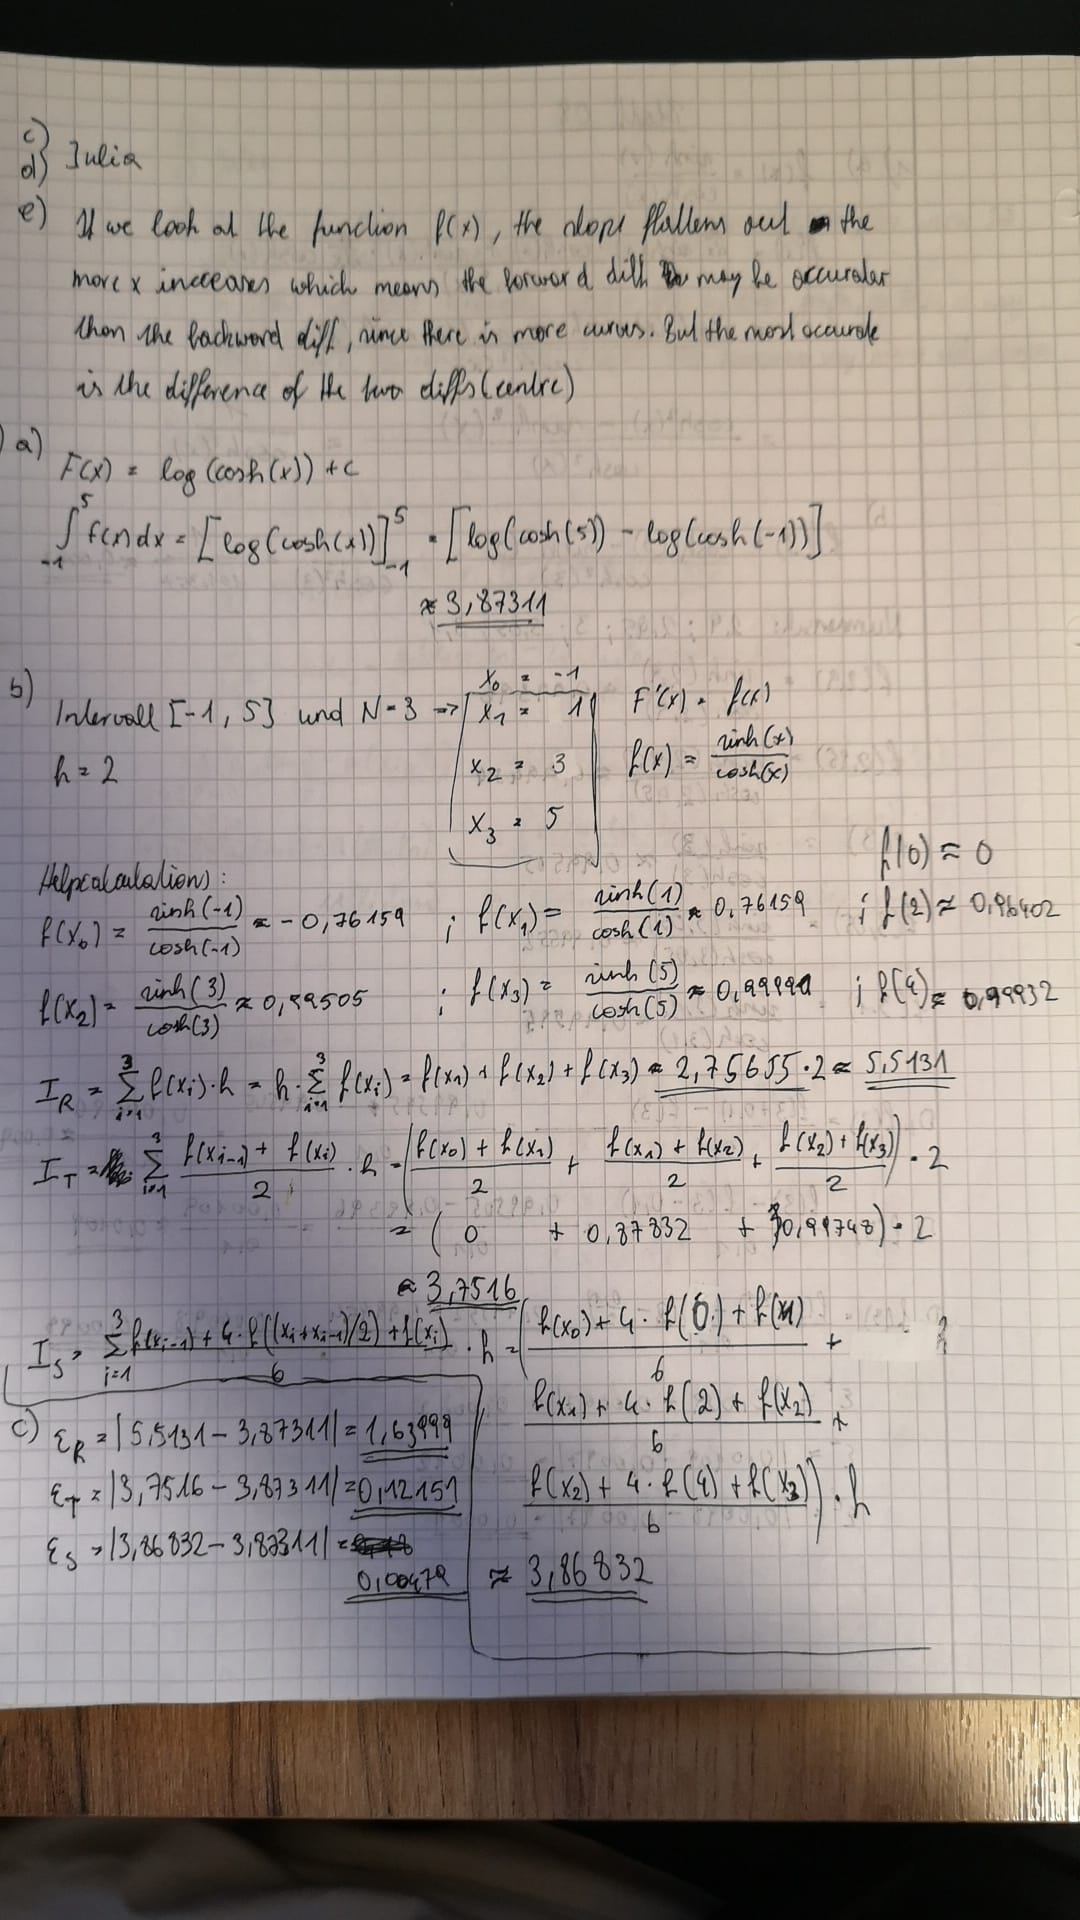 c)
d) Julia
e) If we look at the function f(x), the slope flattens out the
more x increases which means the forward diff may be accurater
then the backward diff, since there is more curves. But the most accurate
is the difference of the two diffs (centre)
a) F(x) = log (cosh(x)) + c
∫₋₁⁵ f(x) dx = [log(cosh(x))]₋₁⁵ = [log(cosh(5)) - log(cosh(-1))]
≈ 3,87311
b) Intervall [-1, 5] und N=3 => x₀ = -1 F'(x) = f(x)
x₁ = 1
h = 2 x₂ = 3 f(x) = sinh(x)/cosh(x)
x₃ = 5
f(0) ≈ 0
Helpcalculations:
f(x₀) = sinh(-1)/cosh(-1) ≈ -0,76159 ; f(x₁) = sinh(1)/cosh(1) ≈ 0,76159 ; f(2) ≈ 0,96402
f(x₂) = sinh(3)/cosh(3) ≈ 0,99505 ; f(x₃) = sinh(5)/cosh(5) ≈ 0,99991 ; f(4) ≈ 0,99932
I_R = Σ_{i=1}^{3} f(xᵢ)·h = h·Σ_{i=1}^{3} f(xᵢ) = f(x₁) + f(x₂) + f(x₃) ≈ 2,75655·2 ≈ 5,5131
I_T = Σ_{i=1}^{3} (f(xᵢ₋₁) + f(xᵢ))/2 · h = ((f(x₀) + f(x₁))/2 + (f(x₁) + f(x₂))/2 + (f(x₂) + f(x₃))/2) · 2
= (0 + 0,87832 + 0,99748) · 2
≈ 3,7516
I_S = Σ_{i=1}^{3} (f(xᵢ₋₁) + 4·f((xᵢ+xᵢ₋₁)/2) + f(xᵢ))/6 · h = ((f(x₀) + 4·f(0) + f(x1))/6 +
(f(x₁) + 4·f(2) + f(x₂))/6 +
(f(x₂) + 4·f(4) + f(x₃))/6) · h
≈ 3,86832
c) ε_R = |5,5131 - 3,87311| = 1,63999
ε_T = |3,7516 - 3,87311| = 0,12151
ε_S = |3,86832 - 3,87311| =
0,00479